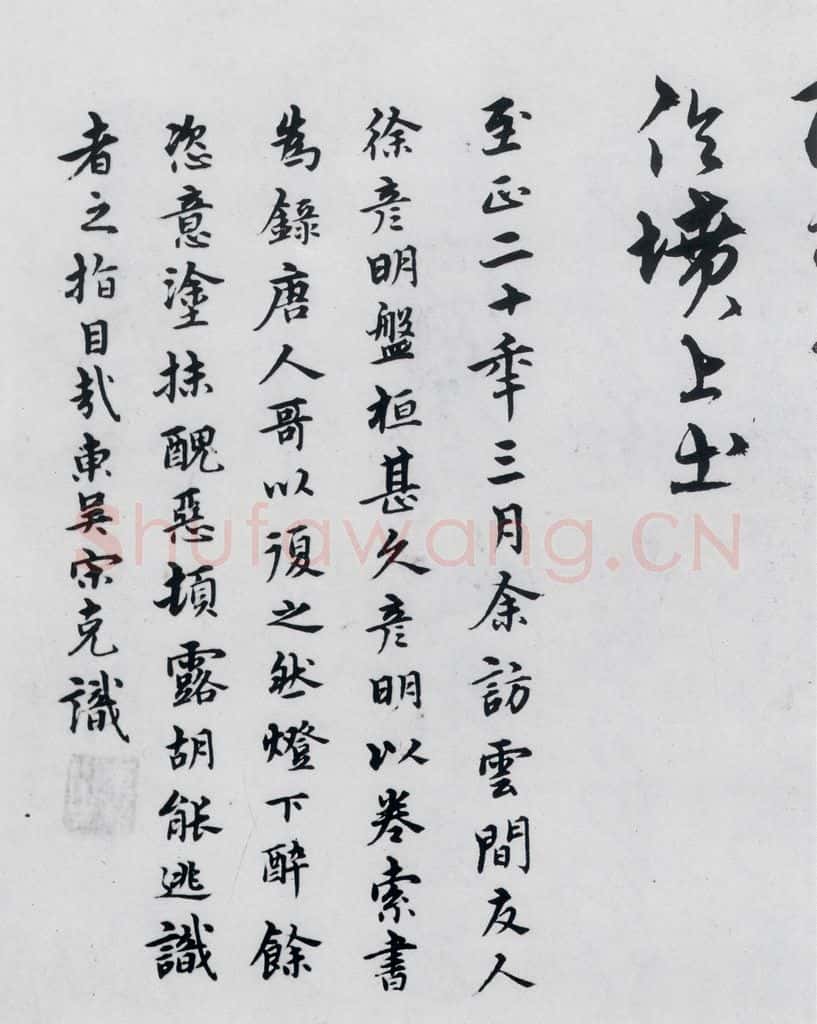 作墳上土
至正二十年三月余訪雲間友人
徐彦明盤桓甚久彦明以卷索書
為錄唐人哥以復之然燈下醉餘
恣意塗抹醜惡頓露胡能逃識
者之指目哉東吳宋克識
Shufawang.CN